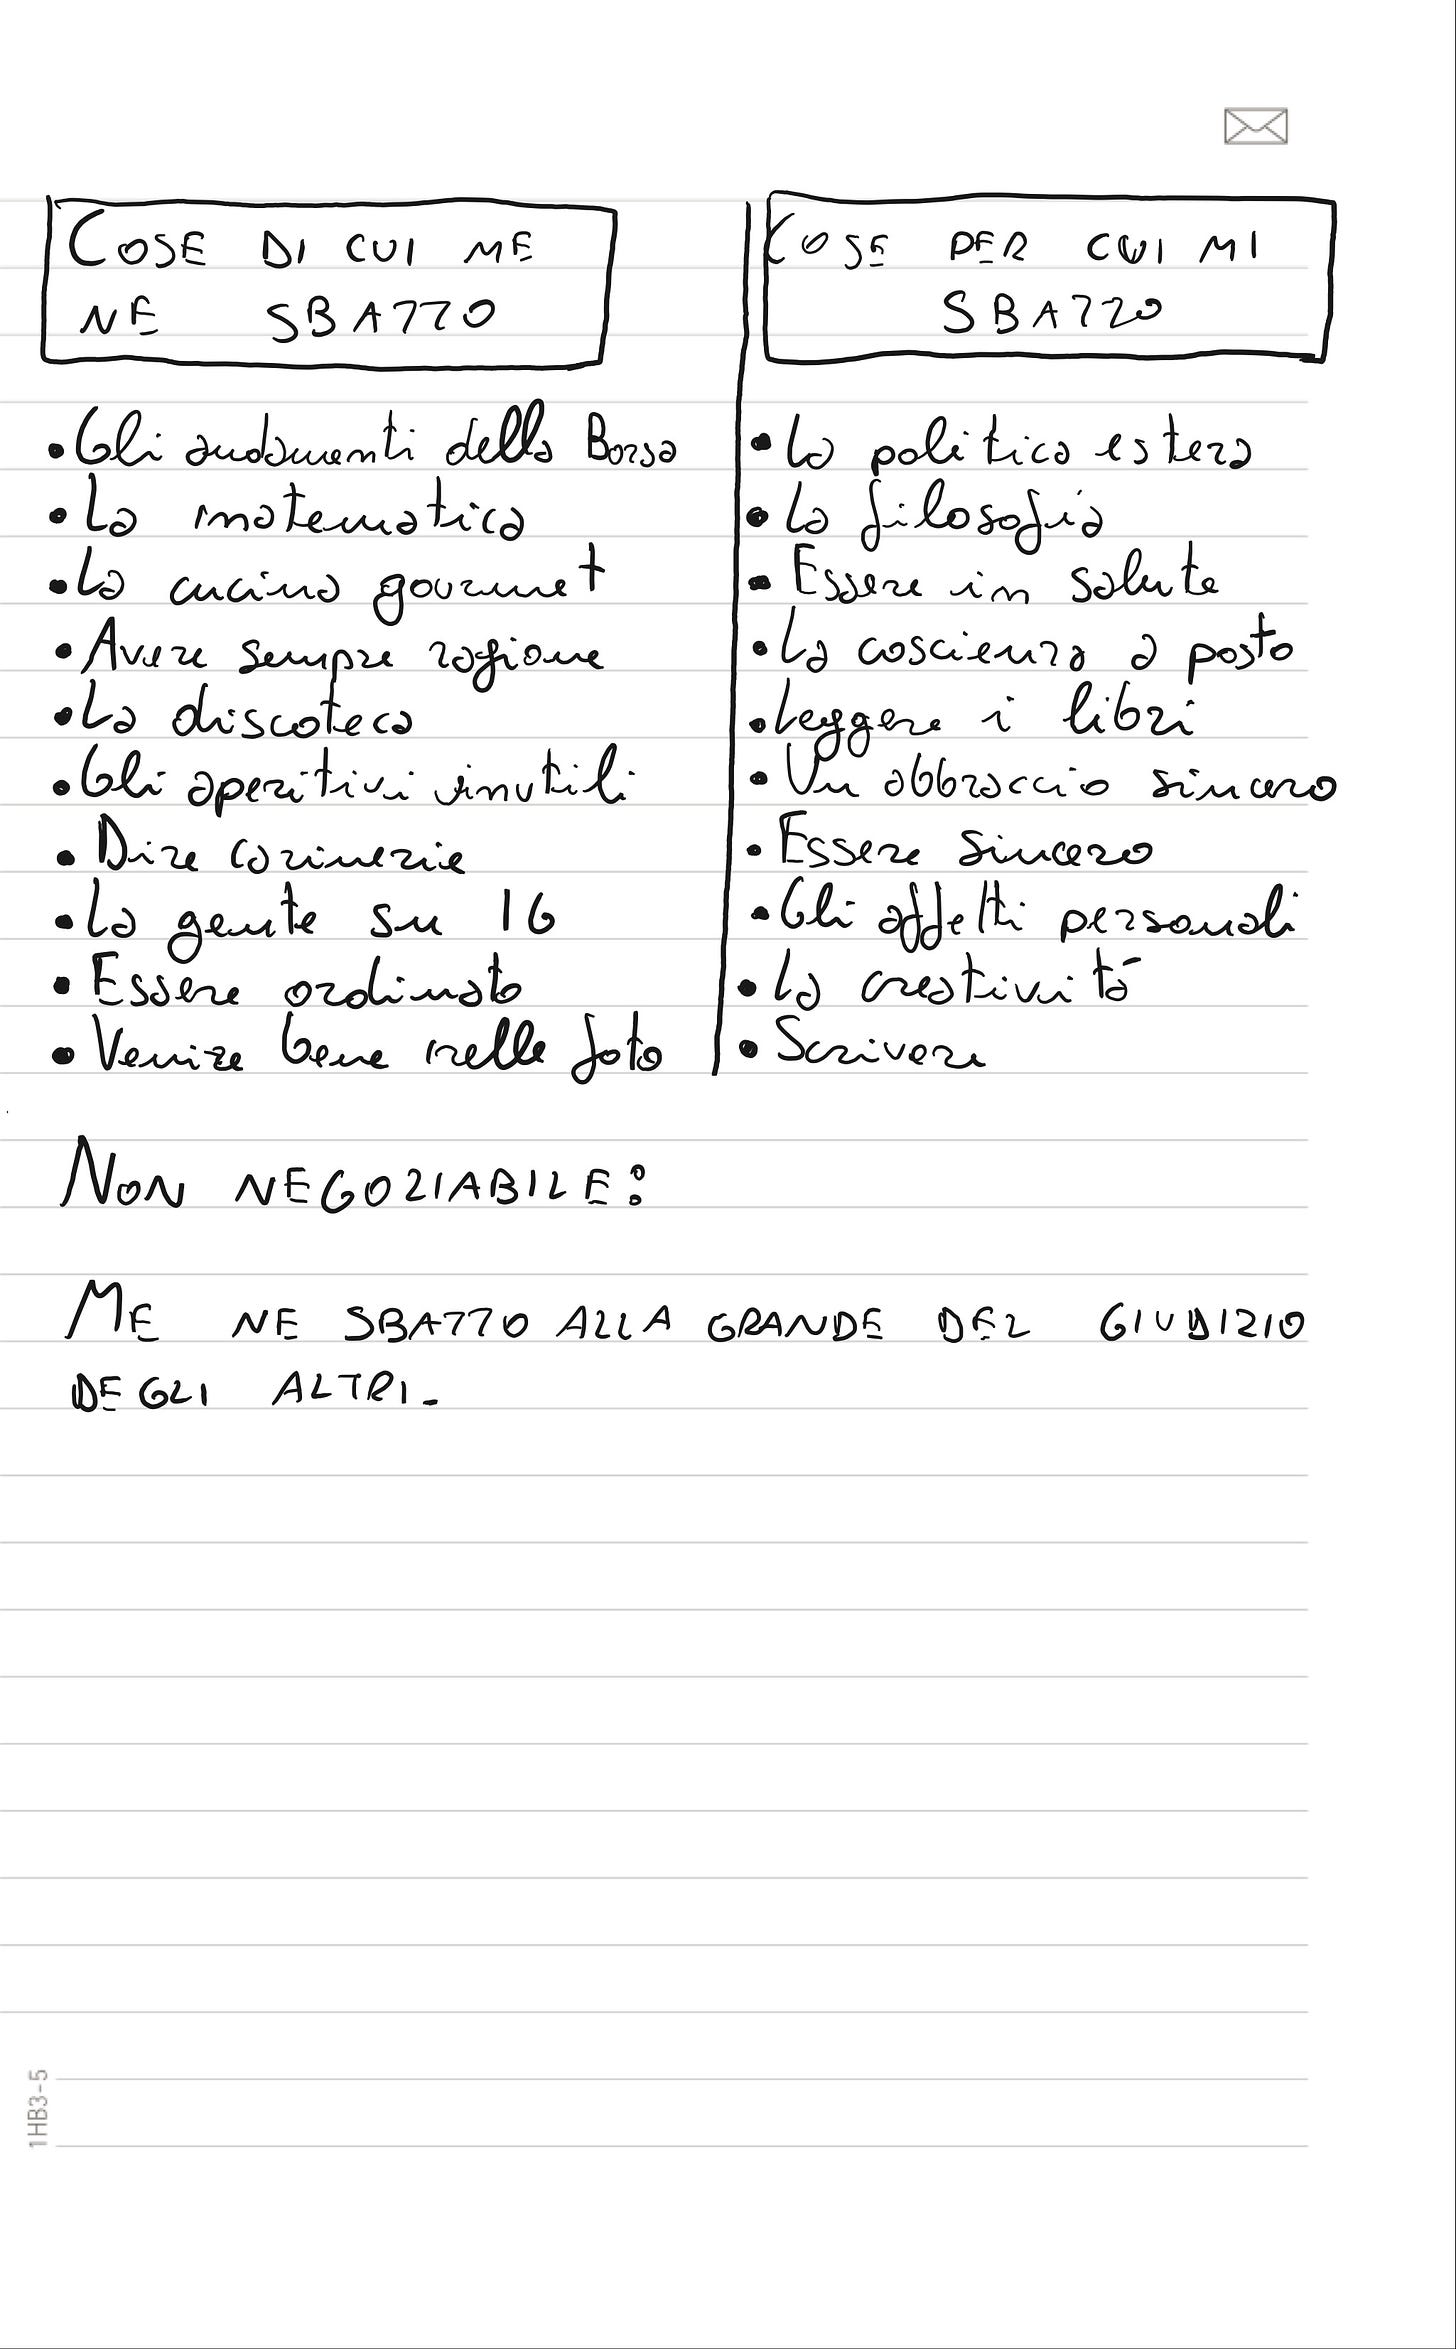 COSE DI CUI ME
NE SBATTO
• Gli andamenti della Borsa
• La matematica
• La cucina gourmet
• Avere sempre ragione
• La discoteca
• Gli aperitivi inutili
• Dire carinerie
• La gente su IG
• Essere ordinato
• Venire bene nelle foto
COSE PER CUI MI
SBATTO
• La politica estera
• La filosofia
• Essere in salute
• La coscienza a posto
• Leggere i libri
• Un abbraccio sincero
• Essere sincero
• Gli affetti personali
• La creatività
• Scrivere
NON NEGOZIABILE:
ME NE SBATTO ALLA GRANDE DEL GIUDIZIO
DEGLI ALTRI.
1HB3-5